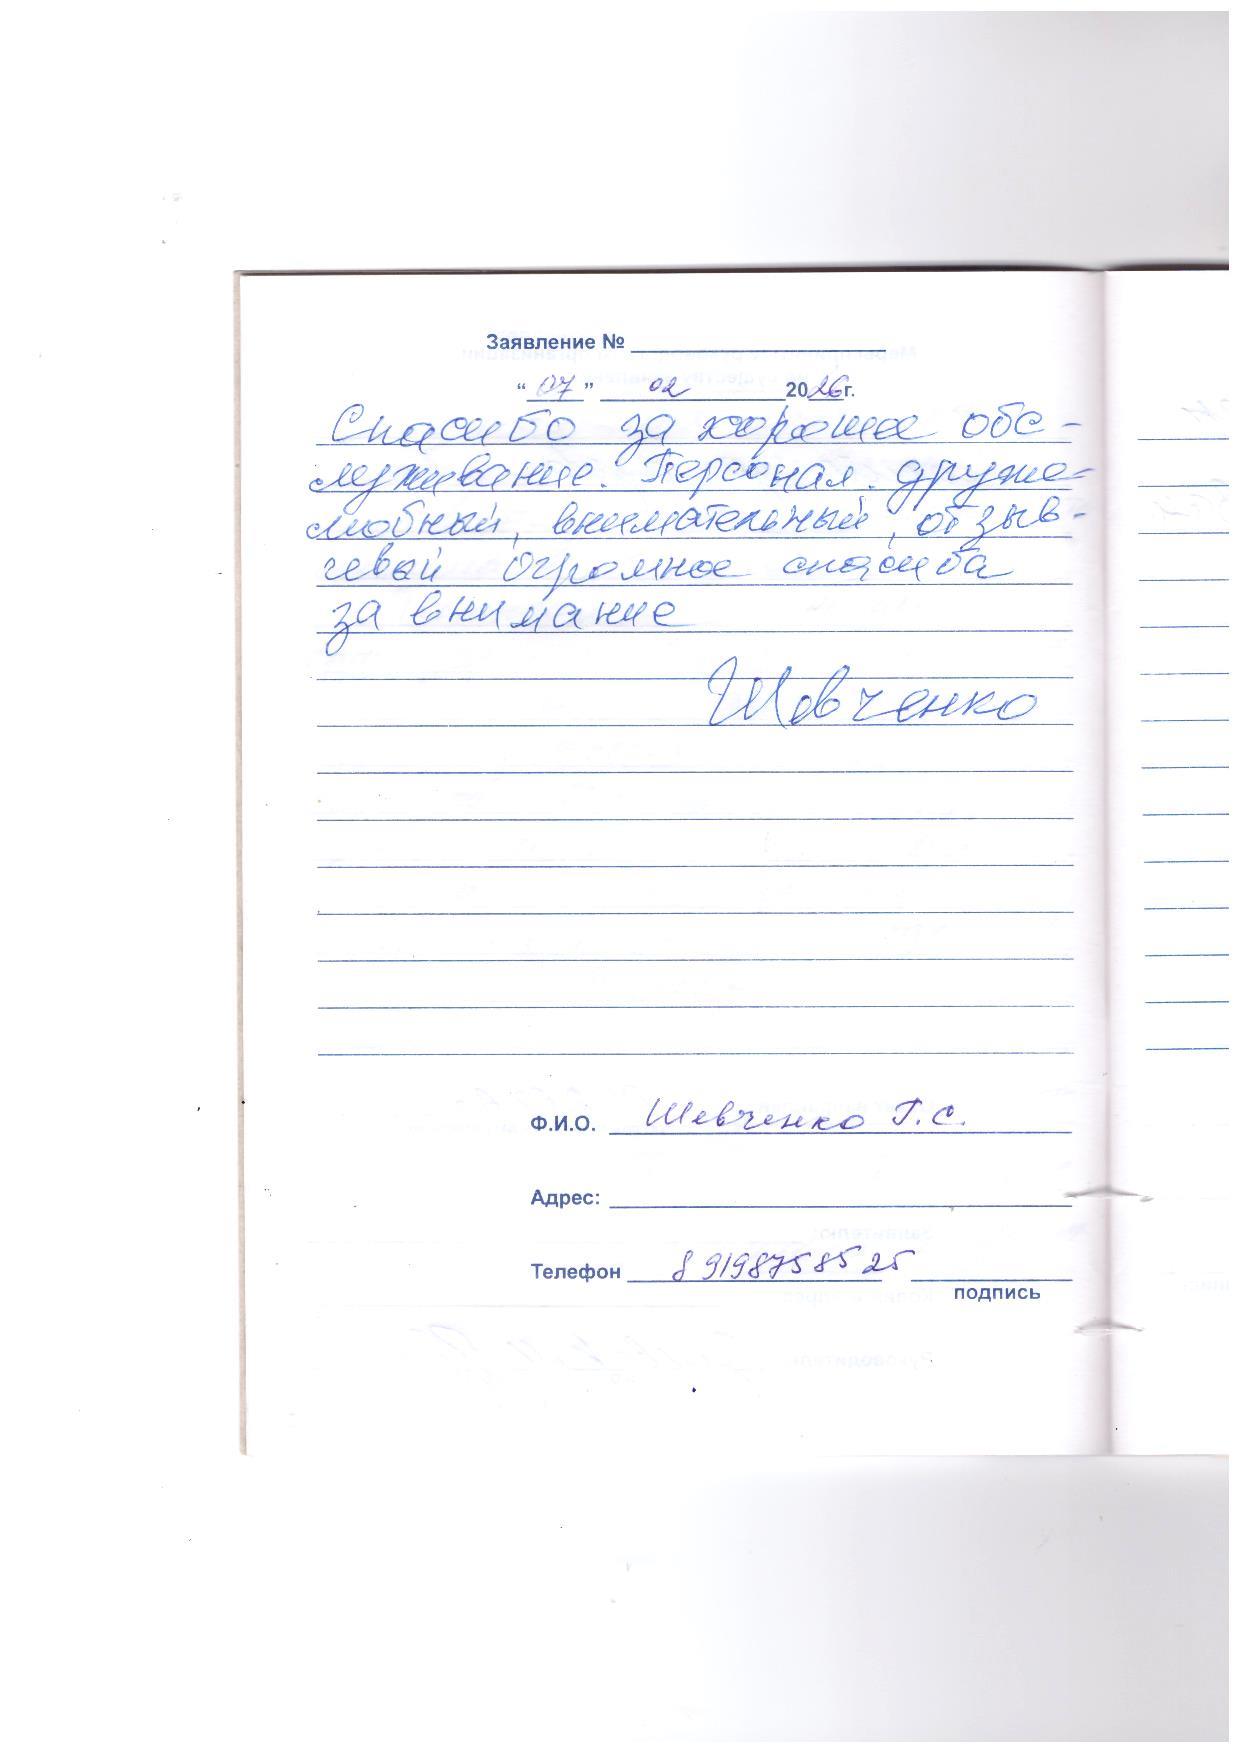 Заявление №
“ 07 ” 02 2026 г.
Спасибо за хорошее обс-
луживание. Персонал. друже-
любный, внимательный, отзыв-
чевый огромное спасиба
за внимание
Шевченко
Ф.И.О. Шевченко Г.С.
Адрес:
Телефон 8 9198758525
подпись